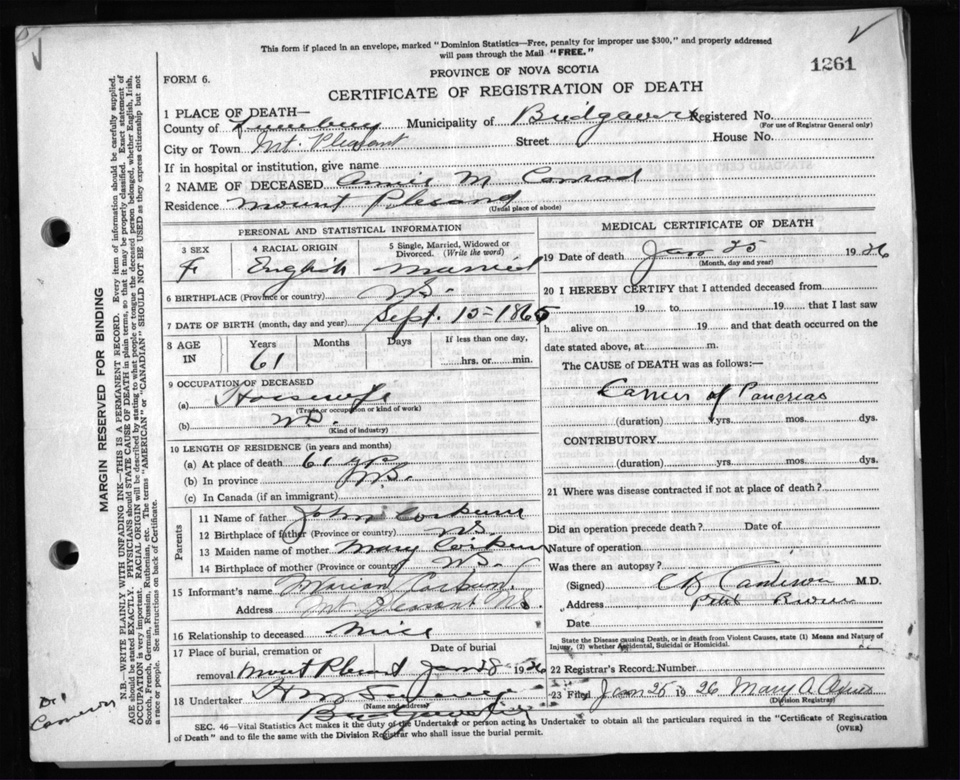 This form if placed in an envelope, marked "Dominion Statistics—Free, penalty for improper use $300," and properly addressed
will pass through the Mail "FREE."
1261
PROVINCE OF NOVA SCOTIA
FORM 6.
CERTIFICATE OF REGISTRATION OF DEATH
1 PLACE OF DEATH—
County of Lunenburg Municipality of Bridgewater Registered No.
(For use of Registrar General only)
City or Town Mt. Pleasant Street House No.
If in hospital or institution, give name
2 NAME OF DECEASED Annie M Conrad
Residence Mount Plesand
(Usual place of abode)
PERSONAL AND STATISTICAL INFORMATION
3 SEX 4 RACIAL ORIGIN 5 Single, Married, Widowed or
Divorced. (Write the word)
F English Married
6 BIRTHPLACE (Province or country) NS.
7 DATE OF BIRTH (month, day and year) Sept. 15 = 1865
8 AGE IN Years Months Days If less than one day,
61 hrs. or min.
9 OCCUPATION OF DECEASED
(a) Housewife
(Trade or occupation or kind of work)
(b)
(Kind of industry)
10 LENGTH OF RESIDENCE (in years and months)
(a) At place of death 61 yrs
(b) In province
(c) In Canada (if an immigrant)
Parents
11 Name of father John Corkum
12 Birthplace of father (Province or country) NS
13 Maiden name of mother Mary Corkum
14 Birthplace of mother (Province or country) NS.
15 Informant's name Marion Corkum
Address Mt Pleasant NS.
16 Relationship to deceased Niece
17 Place of burial, cremation or Date of burial
removal Mount Plesant Jan 28 1926
18 Undertaker
(Name and address)
Bridgewater
MEDICAL CERTIFICATE OF DEATH
19 Date of death Jan 25 1926
(Month, day and year)
20 I HEREBY CERTIFY that I attended deceased from
19 to 19 that I last saw
h alive on 19 and that death occurred on the
date stated above, at m.
The CAUSE OF DEATH was as follows:—
Cancer of Pancreas
(duration) yrs. mos. dys.
CONTRIBUTORY
(duration) yrs. mos. dys.
21 Where was disease contracted if not at place of death?
Did an operation precede death? Date of
Nature of operation
Was there an autopsy?
(Signed) Cameron M.D.
Address
Date
State the Disease causing Death, or in death from Violent Causes, state (1) Means and Nature of
Injury, (2) whether Accidental, Suicidal or Homicidal.
22 Registrar's Record Number
23 Filed Jan 25 1926 Mary A
(Division Registrar)
SEC. 46—Vital Statistics Act makes it the duty of the Undertaker or person acting as Undertaker to obtain all the particulars required in the "Certificate of Registration
of Death" and to file the same with the Division Registrar who shall issue the burial permit.
(OVER)
MARGIN RESERVED FOR BINDING
N.B.—WRITE PLAINLY WITH UNFADING INK—THIS IS A PERMANENT RECORD. Every item of information should be carefully supplied.
AGE should be stated EXACTLY. PHYSICIANS should STATE CAUSE OF DEATH in plain terms, so that it may be properly classified. Exact statement of
OCCUPATION is very important. RACIAL ORIGIN will be described by stating to what people or tongue the deceased person belonged, whether English, Irish,
Scotch, French, German, Russian, Ruthenian, etc. The terms "AMERICAN" or "CANADIAN" SHOULD NOT BE USED as they express citizenship but not
a race or people. See instructions on back of Certificate.
Dr
Cameron